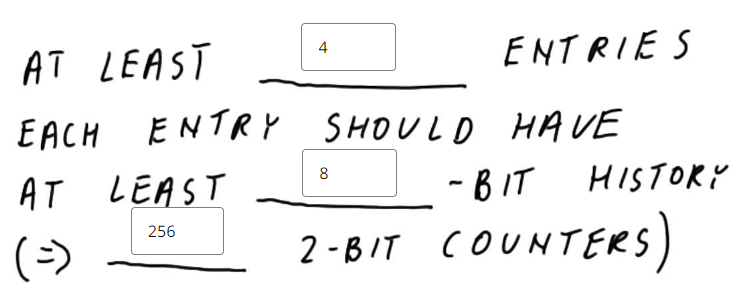 AT LEAST 4 ENTRIES
EACH ENTRY SHOULD HAVE
AT LEAST 8 -BIT HISTORY
(=> 256 2-BIT COUNTERS)